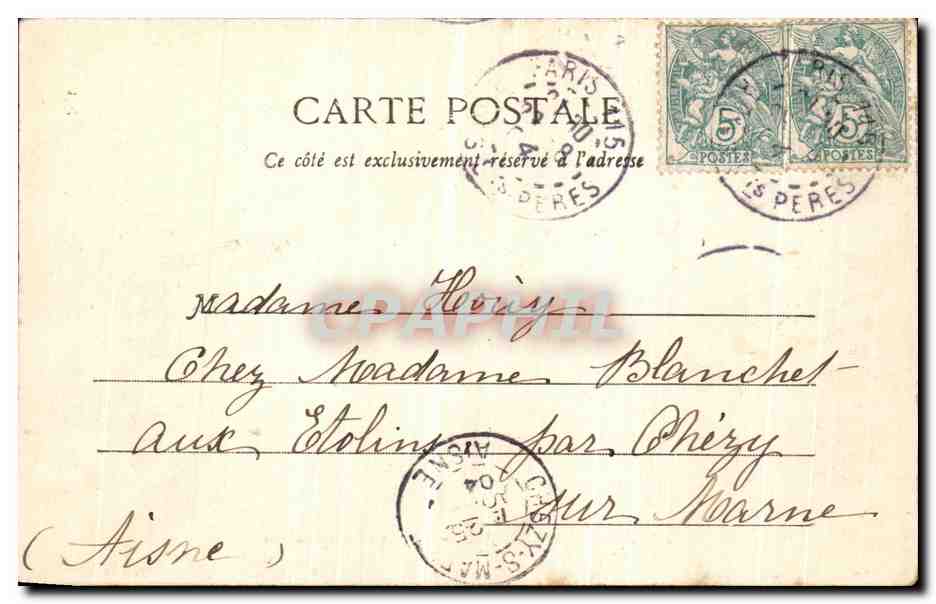 CARTE POSTALE
Ce côté est exclusivement réservé à l'adresse
PARIS 115
04
Sts PERES
5 5
POSTES POSTES
PARIS 115
Sts PERES
CPAPHIL
Madame Hoüy
Chez Madame Blanchet
aux Etolins par Chézy
sur Marne
(Aisne)
CHEZY-S-MAR
AISNE
04